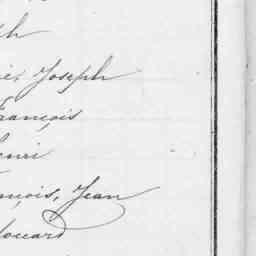 ph
ie, Joseph
François
enri
nçois, Jean
douard